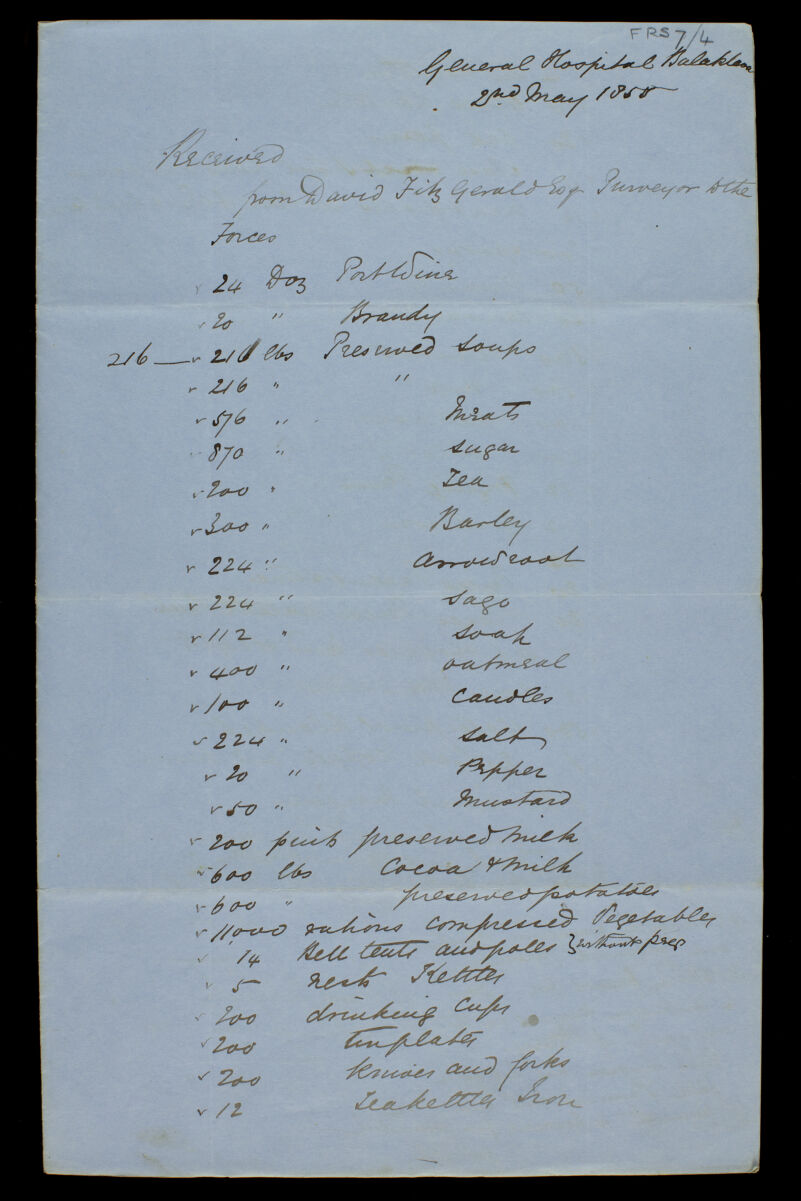 FRS 7/4
General Hospital Balaklava
2nd May 1855
Received
from David Fitz Gerald Esqr Purveyor to the
Forces
24 Doz Port Wine
20 " Brandy
216 — 216 lbs Preserved Soups
216 " "
576 " Meats
870 " Sugar
200 " Tea
300 " Barley
224 " arrowroot
224 " Sago
112 " Soap
400 " oatmeal
100 " Candles
224 " Salt
20 " Pepper
50 " Mustard
200 pints preserved milk
600 lbs Cocoa & milk
600 " preserved potatoes
11,000 rations compressed Vegetables
14 Bell tents and poles } without pegs
5 nests Kettles
200 drinking Cups
200 tin plates
200 Knives and forks
12 Teakettles Iron